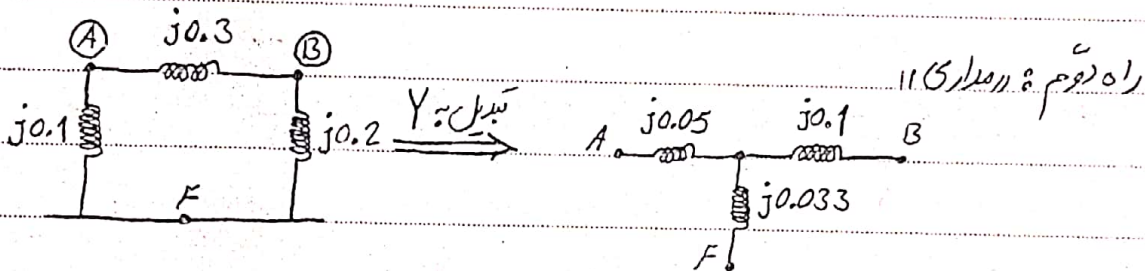 راه دوّم : درمداری !!
A j0.3 B
j0.1 j0.2
F
تبدیل به Y
A j0.05 j0.1 B
j0.033
F